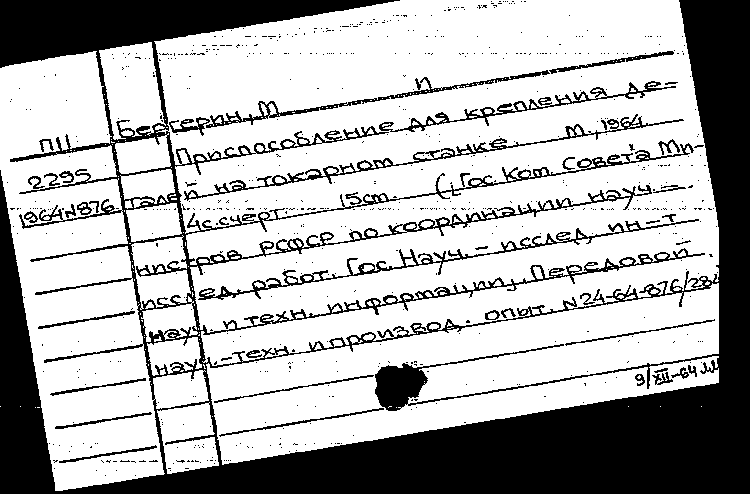 П
П11 Бергерин, М
Приспособление для крепления де-
2295
талей на токарном станке. М., 1964
1964N876
4с.счерт. 15cm. (Гос. Ком. Совета Ми-
нистров РСФСР по координации науч.-
исслед. работ. Гос. Науч.-исслед. ин-т
науч. и техн. информации). Передовой
науч.-техн. и производ. опыт. N24-64-876/284
9/XII-64